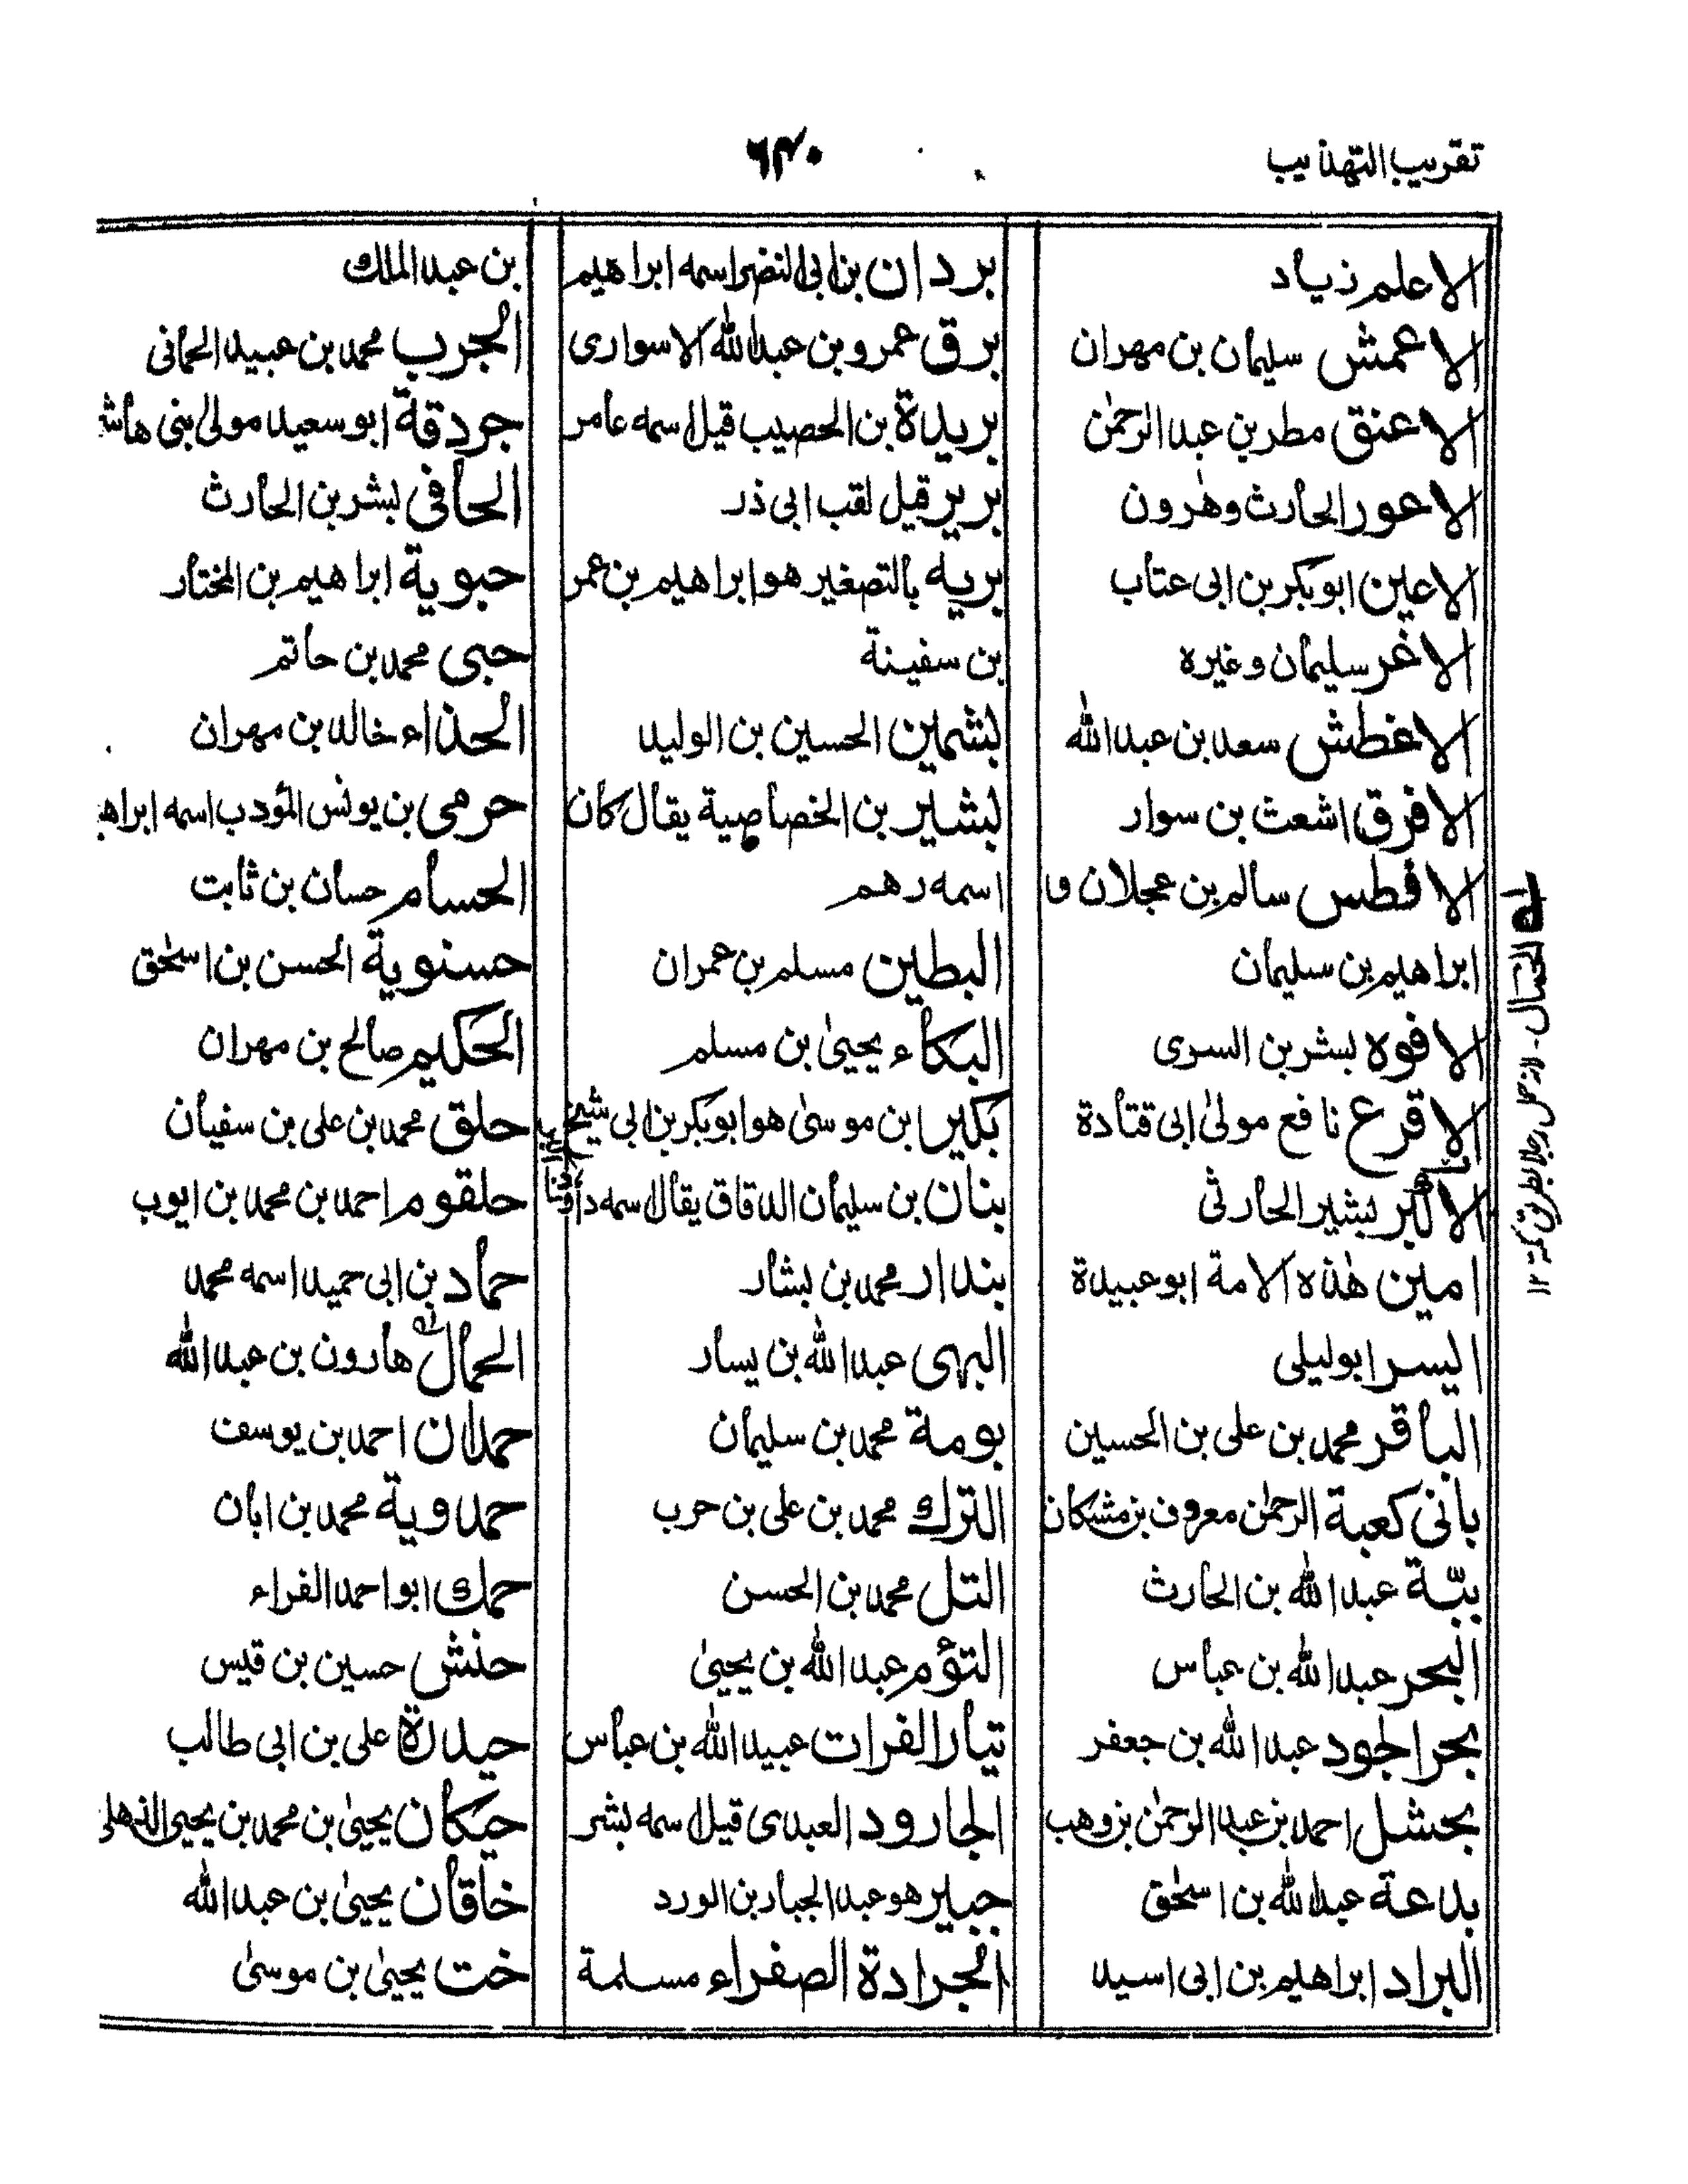 تقريب التهذيب
٦٤٠
الاعلم زياد
الاعمش سليمان بن مهران
الاعنق مطر بن عبد الرحمٰن
الاعور الحارث وهٰرون
الاعين ابو بكر بن ابى عتاب
الاغر سليمان وغيره
الاغطش سعد بن عبد الله
الافرق اشعث بن سوار
الافطس سالم بن عجلان و
ابراهيم بن سليمان
الافوه بشر بن السرى
الاقرع نافع مولىٰ ابى قتادة
الاكبر بشير الحارثى
امين هٰذه الامة ابو عبيدة
اليسر ابو ليلى
الباقر محمد بن على بن الحسين
بانى كعبة الرحمٰن معروف بن مشكان
ببّة عبد الله بن الحارث
البحر عبد الله بن عباس
بحر الجود عبد الله بن جعفر
بحشل احمد بن عبد الرحمٰن بن وهب
بدعة عبد الله بن اسحٰق
البراد ابراهيم بن ابى اسيد
بردان بن ابى النضر اسمه ابراهيم
برق عمرو بن عبد الله الاسوارى
بريدة بن الحصيب قيل اسمه عامر
برير قيل لقب ابى ذر
بريه بالتصغير هو ابراهيم بن عمر
بن سفينة
بشمين الحسين بن الوليد
بشير بن الخصاصية يقال كان
اسمه زهم
البطين مسلم بن عمران
البكاء يحيىٰ بن مسلم
بكير ابن موسىٰ هو ابو بكر بن ابى شيخ
بنان بن سليمان الدقاق يقال اسمه داؤد
بندار محمد بن بشار
البهى عبد الله بن يسار
بومة محمد بن سليمان
الترك محمد بن على بن حرب
التل محمد بن الحسن
التؤم عبد الله بن يحيىٰ
تيار الفرات عبيد الله بن عباس
الجارود العبدى قيل اسمه بشر
جبير هو عبد الجبار بن الورد
الجرادة الصفراء مسلمة
بن عبد الملك
الجرب محمد بن عبيد الحمانى
جردقة ابو سعيد مولى بنى هاش
الحافى بشر بن الحارث
حبوية ابراهيم بن المختار
حبى محمد بن حاتم
الحذاء خالد بن مهران
حرمى بن يونس المؤدب اسمه ابراه
الحسام حسان بن ثابت
حسنوية الحسن بن اسحٰق
الحكيم صالح بن مهران
حلق محمد بن على بن سفيان
حلقوم احمد بن محمد بن ايوب
حماد بن ابى حميد اسمه محمد
الحمال له هارون بن عبد الله
حمدان احمد بن يوسف
حمدوية محمد بن ابان
حمك ابو احمد الفراء
حنش حسين بن قيس
حيدرة على بن ابى طالب
حيكان يحيىٰ بن محمد بن يحيى الذهلى
خاقان يحيىٰ بن عبد الله
خت يحيىٰ بن موسىٰ
له الحمال - لانه حمل رجلا بطريق مكة ١٢